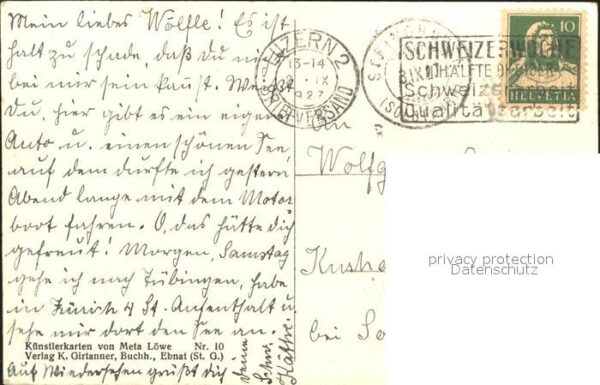 Mein liebes Wölfle! Es ist
halt zu schade, daß du nicht
bei mir sein kannst. Weißt
Du, hier gibt es ein eigenes
Auto u. einen schönen See,
auf dem durfte ich gestern
Abend lange mit dem Motor
boot fahren. O, das hätte dich
gefreut! Morgen, Samstag
gehe ich nach Tübingen, habe
in Zürich 4 St. Aufenthalt u.
sehe mir dort den See an.
Künstlerkarten von Meta Löwe Nr. 10
Verlag K. Girtanner, Buchh., Ebnat (St. G.)
Auf Wiedersehen grüßt dich
deine
Schw.
Käthe.
LUZERN 2
13-14
IX
1927
BRIEFVERSAND
SCHWEIZERWOCHE
II HÄLFTE OKTOBER
Schweizer
Qualitätsarbeit
10
HELVETIA
An
Wolfg
bei
privacy protection
Datenschutz